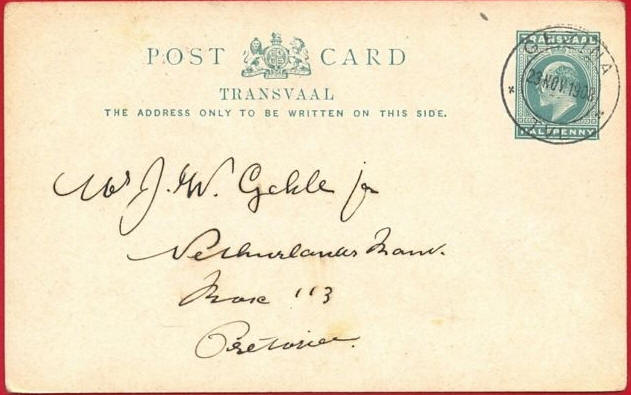 POST CARD
TRANSVAAL
THE ADDRESS ONLY TO BE WRITTEN ON THIS SIDE.
TRANSVAAL
23 NOV 1908
HALFPENNY
Mr J. W. Gehle jr
Netherlands Bank.
Box 113
Pretoria.